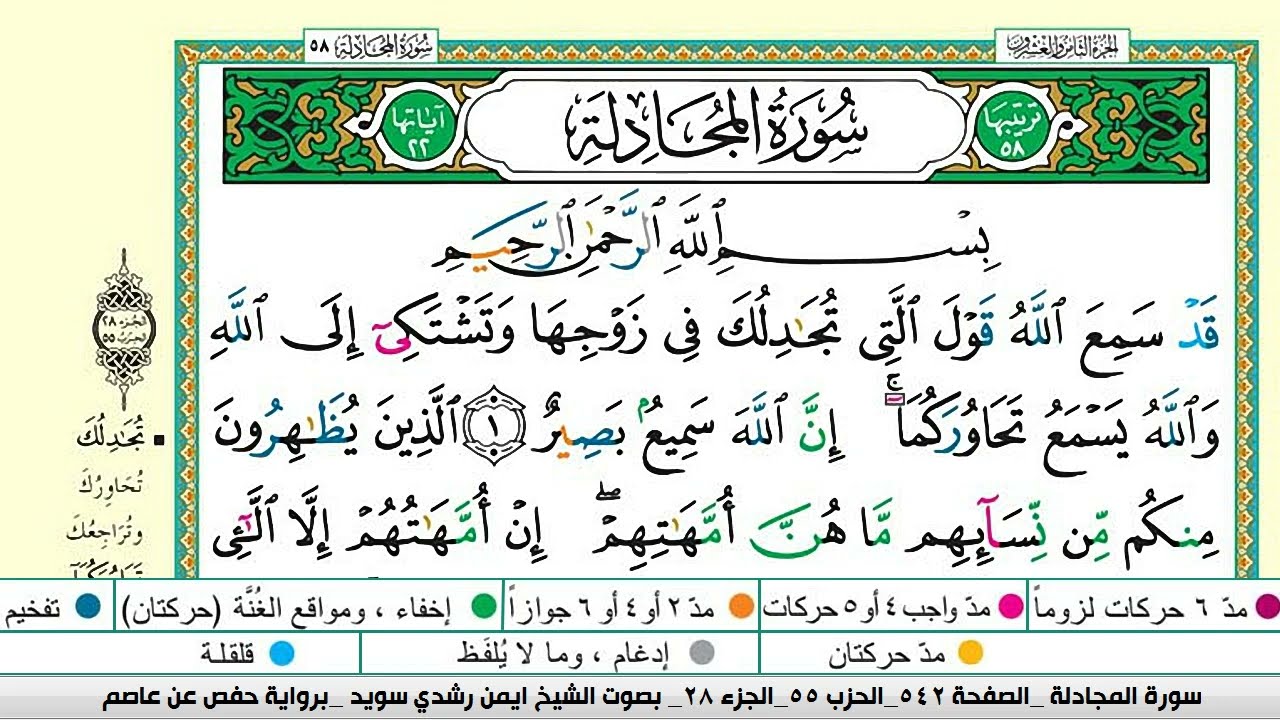 سُورَةُ المُجَادلة ٥٨
الجزء الثامن والعشرون
ترتيبها ٥٨
سُورَةُ المُجَادِلَةِ
آياتها ٢٢
بِسْمِ ٱللَّهِ ٱلرَّحْمَٰنِ ٱلرَّحِيمِ
قَدْ سَمِعَ ٱللَّهُ قَوْلَ ٱلَّتِى تُجَٰدِلُكَ فِى زَوْجِهَا وَتَشْتَكِىٓ إِلَى ٱللَّهِ
وَٱللَّهُ يَسْمَعُ تَحَاوُرَكُمَآ ۚ إِنَّ ٱللَّهَ سَمِيعٌۢ بَصِيرٌ ١ ٱلَّذِينَ يُظَٰهِرُونَ
مِنكُم مِّن نِّسَآئِهِم مَّا هُنَّ أُمَّهَٰتِهِمْ ۖ إِنْ أُمَّهَٰتُهُمْ إِلَّا ٱلَّٰٓـِٔى
الجزء ٢٨
الحزب ٥٥
تُجَٰدِلُكَ
تُحَاوِرُكَ
وتُرَاجِعُكَ
مدّ ٦ حركات لزوماً
مدّ واجب ٤ أو ٥ حركات
مدّ ٢ أو ٤ أو ٦ جوازاً
إخفاء ، ومواقع الغُنَّة (حركتان)
تفخيم
مدّ حركتان
إدغام ، وما لا يُلفَظ
قلقلة
سورة المجادلة _الصفحة ٥٤٢_الحزب ٥٥_الجزء ٢٨_ بصوت الشيخ ايمن رشدي سويد _برواية حفص عن عاصم